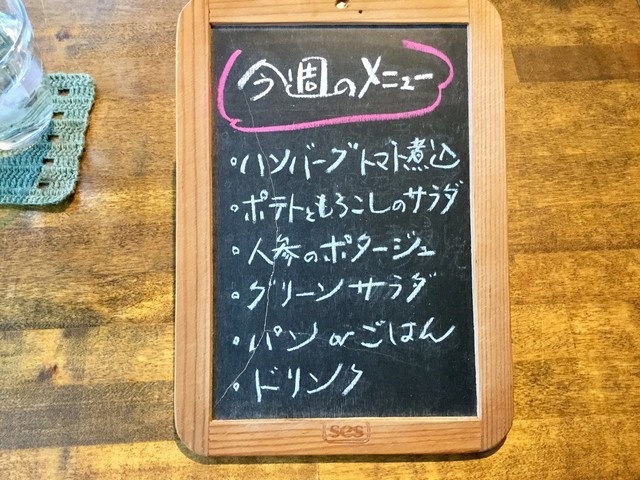 今週のメニュー
・ハンバーグトマト煮込
・ポテトともろこしのサラダ
・人参のポタージュ
・グリーンサラダ
・パン or ごはん
・ドリンク
ses